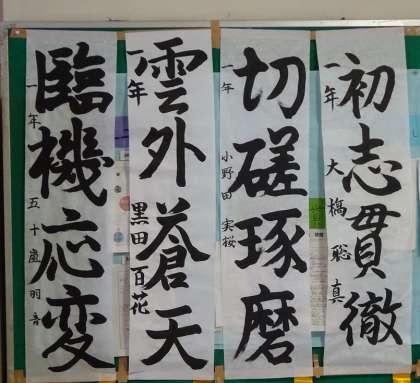 初志貫徹
一年 大橋聡真
切磋琢磨
一年 小野田実桜
雲外蒼天
一年 黒田百花
臨機応変
一年 五十嵐羽音